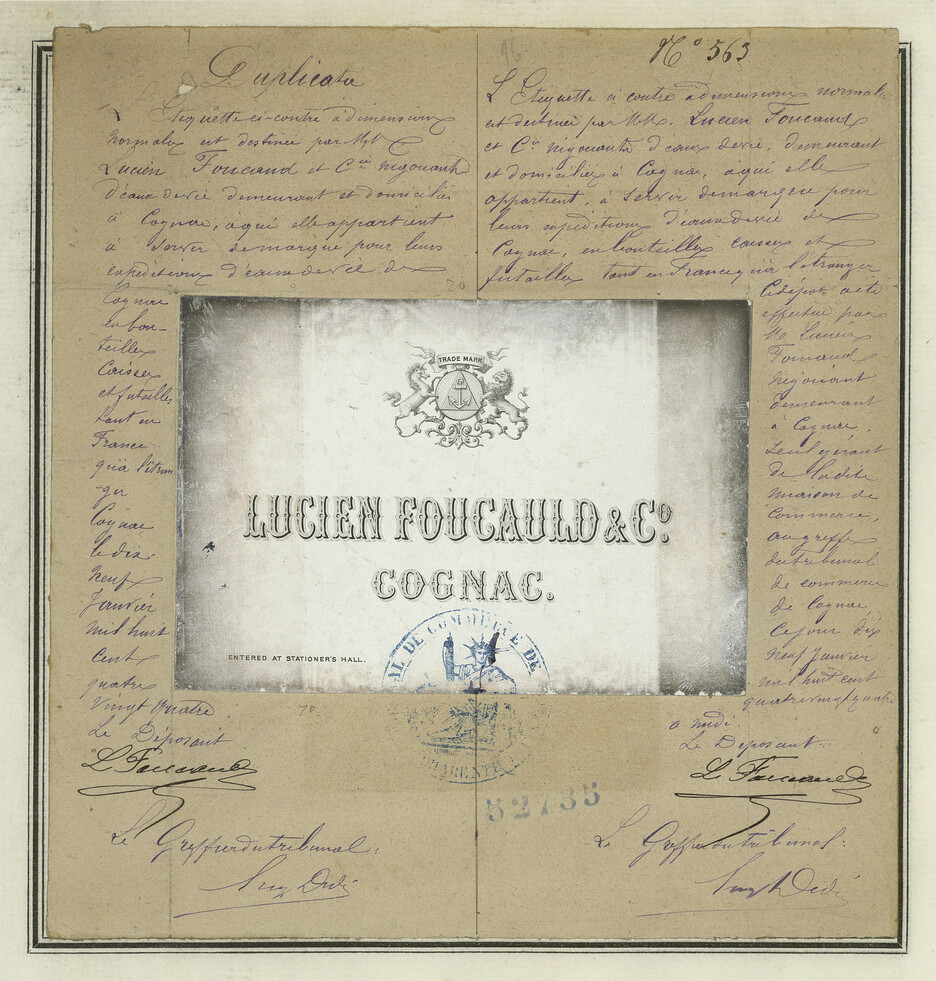 Duplicata
L'Etiquette ci-contre à dimensions
normales est destinée par Mrs
Lucien Foucauld et Cie négociants
d'eaux de vie demeurant et domiciliés
à Cognac, à qui elle appartient
à servir de marque pour leurs
expéditions d'eaux de vie de
Cognac
en bou-
teilles
Caisses
et futailles
tant en
France
qu'à l'étran
ger
Cognac
le dix
neuf
Janvier
mil huit
cent
quatre
Vingt quatre
Le Déposant
L Foucauld
Le Greffier du tribunal:
No 563
L'Etiquette ci contre à dimensions normales
est destinée par MM. Lucien Foucauld
et Cie négociants d'eaux de vie, demeurant
et domiciliés à Cognac, à qui elle
appartient, à servir de marque pour
leurs expéditions d'eaux de vie de
Cognac, en bouteilles caisses et
futailles tant en France qu'à l'étranger
Ce dépôt a été
effectué par
Mr Lucien
Foucauld
négociant
demeurant
à Cognac,
seul gérant
de la dite
maison de
commerce,
au greffe
du tribunal
de commerce
de Cognac,
ce jour dix
neuf Janvier
mil huit cent
quatre vingt quatre
à midi.
Le Déposant.
L Foucauld
Le Greffier du tribunal:
TRADE MARK
LUCIEN FOUCAULD & Co.
COGNAC.
ENTERED AT STATIONER'S HALL.
AL DE COMMERCE DE
CHARENTE
70
70
96
52735